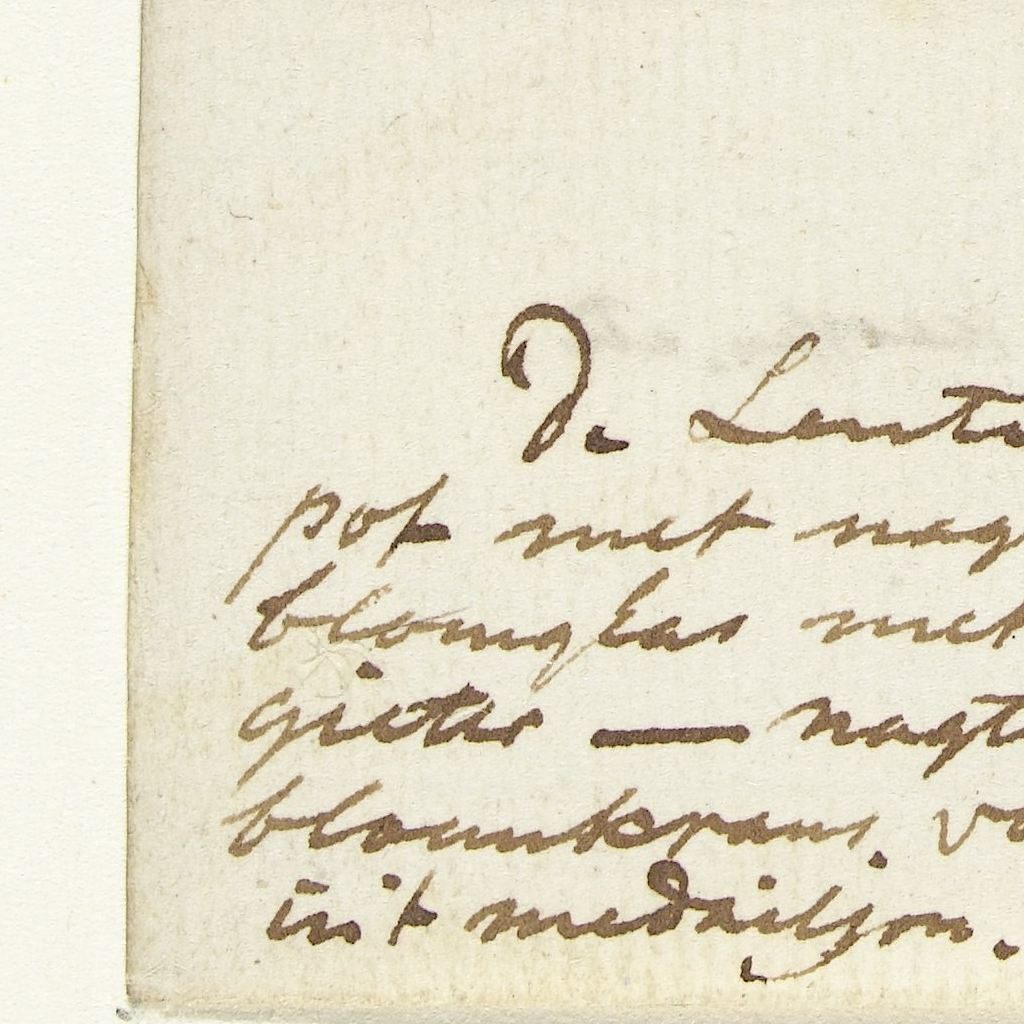 De Lente
pot met nagt
blomglas met
gieter — nagt
bloemkrans. vo
in't medailjon.